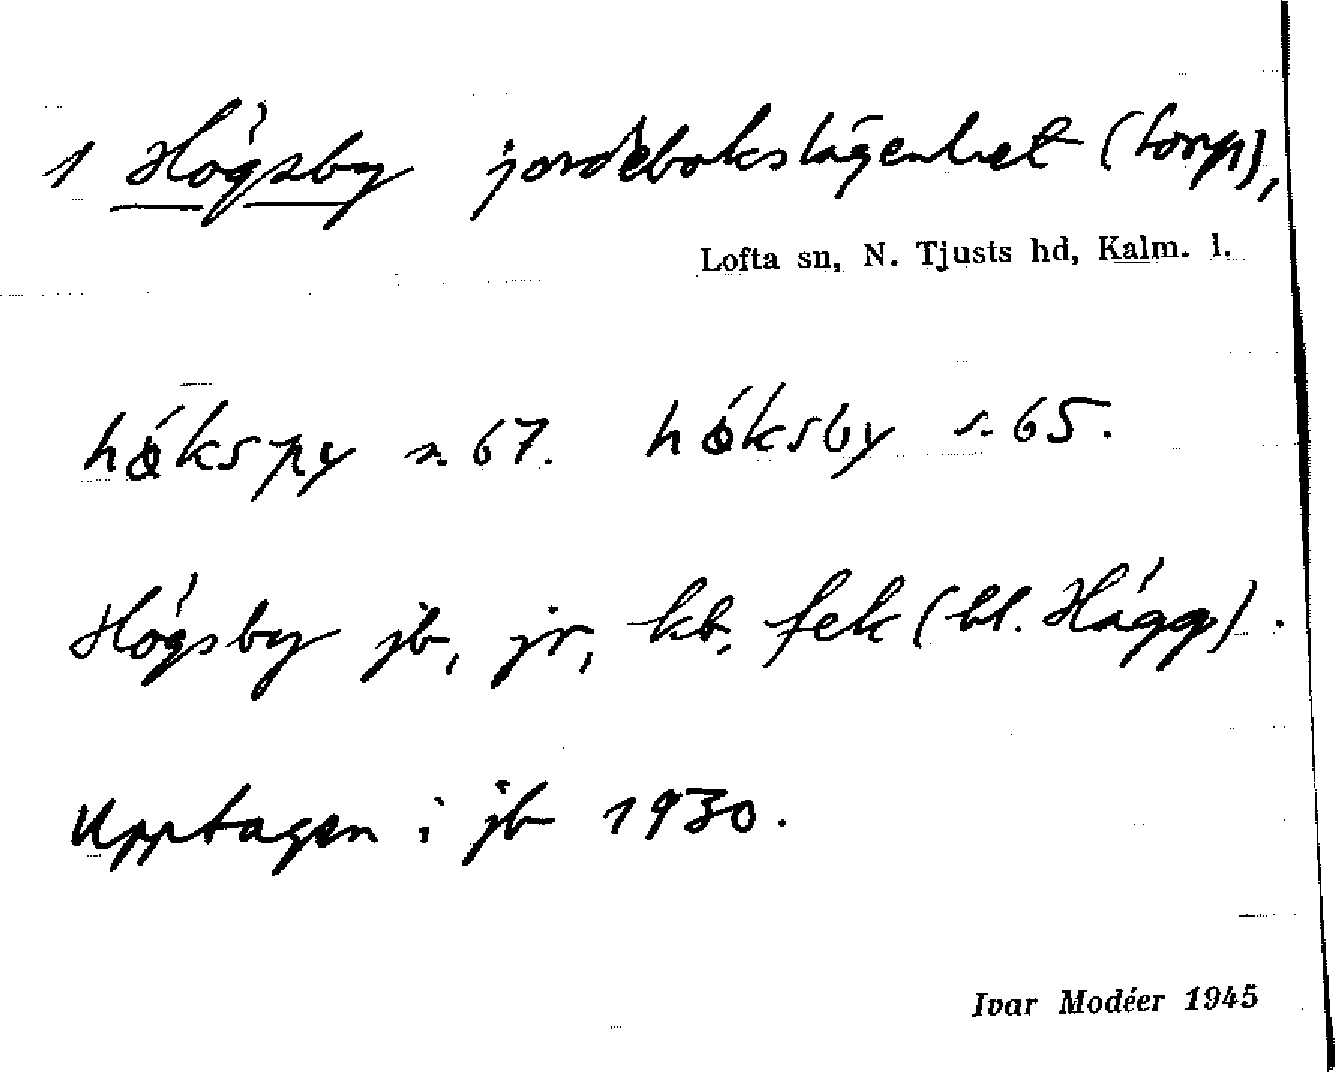 1 Högsby jordebokslägenhet (torp),
Lofta sn, N. Tjusts hd, Kalm. l.
hǿkspy s. 67. hǿksby s. 65.
Högsby jb, jr, kb, fek (bl. Hägg).
Upptagen i jb 1930.
Ivar Modéer 1945